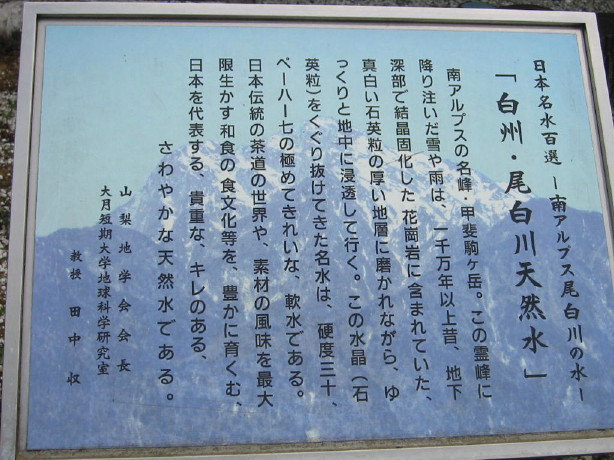 日本名水百選 ー南アルプス尾白川の水ー
「白州・尾白川天然水」
南アルプスの名峰・甲斐駒ヶ岳。この霊峰に
降り注いだ雪や雨は、一千万年以上昔、地下
深部で結晶固化した花崗岩に含まれていた、
真白い石英粒の厚い地層に磨かれながら、ゆ
っくりと地中に浸透して行く。この水晶（石
英粒）をくぐり抜けてきた名水は、硬度三十、
ペーハー七の極めてきれいな、軟水である。
日本伝統の茶道の世界や、素材の風味を最大
限生かす和食の食文化等を、豊かに育くむ、
日本を代表する、貴重な、キレのある、
さわやかな天然水である。
山梨地学会会長
大月短期大学地球科学研究室
教授 田中収